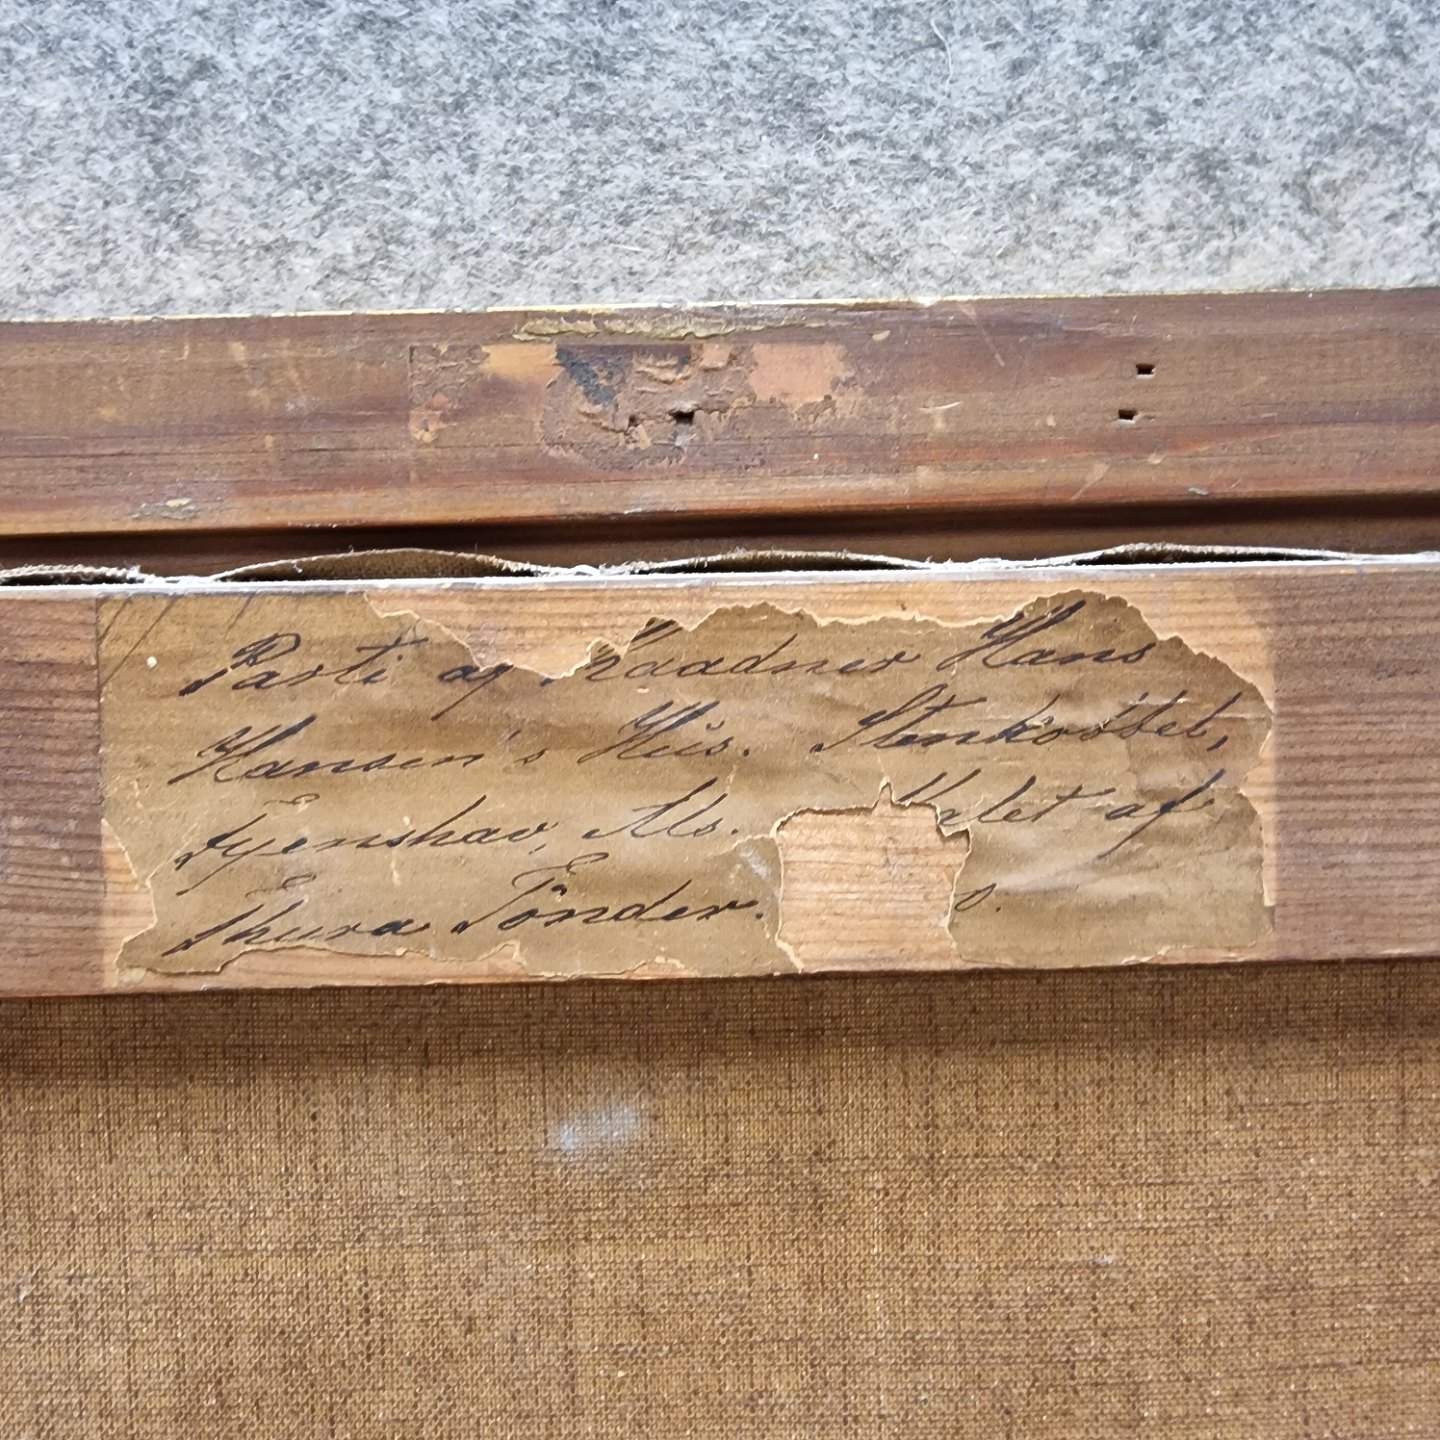 Parti ag Kaadner Hans
Hansen's Hus. Stenkobbel,
Fyenshav, Als. Malet af
Thura Tönder.